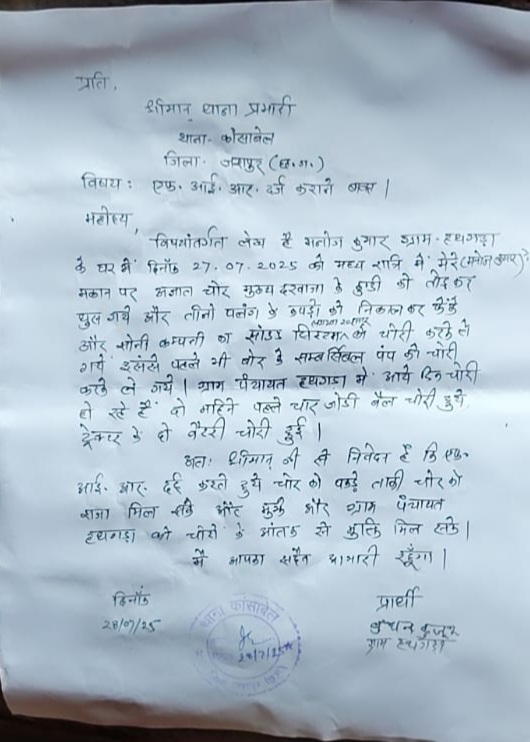 प्रति,
श्रीमान् थाना प्रभारी
थाना- कांसाबेल
जिला- जशपुर (छ.ग.)
विषय: एफ. आई. आर. दर्ज कराने बाबत् |
महोदय,
विषयांतर्गत लेख है मनोज कुमार ग्राम- हथगड़ा
के घर में दिनाँक 27.07.2025 को मध्य रात्रि में मेरे (मनोज कुमार)
मकान पर अज्ञात चोर मुख्य दरवाजा के कुण्डी को तोड़कर
घुस गये और तीनों पलंग के कपड़ों को निकालकर फेंके
और सोनी कम्पनी का साउंड सिस्टम को चोरी करके ले
गये इससे पहले भी बोर के सम्बर्सिबल पंप को चोरी
करके ले गये | ग्राम पंचायत हथगड़ा में आये दिन चोरी
हो रहे हैं दो महिने पहले चार जोड़ी बैल चोरी हुये
ट्रेक्टर के दो बैटरी चोरी हुई |
अतः श्रीमान जी से निवेदन है कि एफ.
आई. आर. दर्ज करते हुये चोर को पकड़े ताकी चोर को
सजा मिल सके और मुझे और ग्राम पंचायत
हथगड़ा को चोरों के आंतक से मुक्ति मिल सके |
मैं आपका सदैव आभारी रहूँगा |
दिनाँक
28/07/25
प्रार्थी
ग्राम हथगड़ा
थाना कांसाबेल
28/7/25